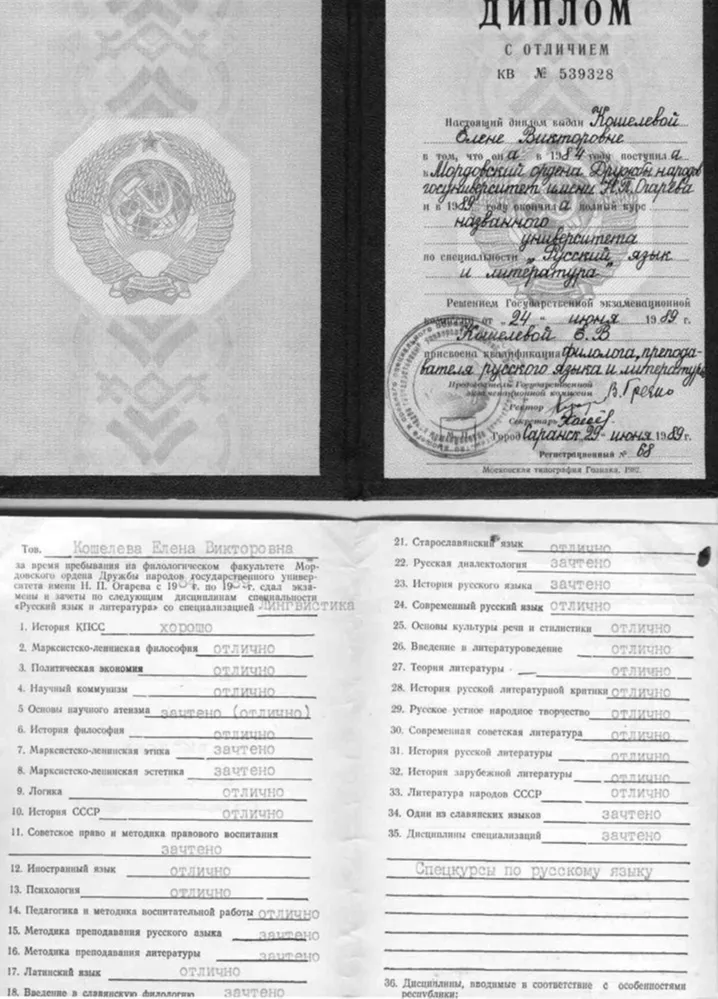 ДИПЛОМ
С ОТЛИЧИЕМ
КВ № 539328
Настоящий диплом выдан Кошелевой
Елене Викторовне
в том, что он а в 1984 году поступил а
в Мордовский ордена Дружбы народов
госуниверситет имени Н.П. Огарёва
и в 1989 году окончил а полный курс
названного
университета
по специальности „Русский язык
и литература"
Решением Государственной экзаменационной
комиссии от „24" июня 1989 г.
Кошелевой Е.В
присвоена квалификация филолога, препода-
вателя русского языка и литературы
Председатель Государственной
экзаменационной комиссии
Ректор
Секретарь
Город Саранск, 29 июня 1989 г.
Регистрационный № 68
Московская типография Гознака. 1982.
Тов. Кошелева Елена Викторовна
за время пребывания на филологическом факультете Мор-
довского ордена Дружбы народов государственного универ-
ситета имени Н. П. Огарева с 19 г. по 19 г. сдал экза-
мены и зачеты по следующим дисциплинам специальности
«Русский язык и литература» со специализацией ЛИНГВИСТИКА
1. История КПСС хорошо
2. Марксистско-ленинская философия отлично
3. Политическая экономия отлично
4. Научный коммунизм отлично
5 Основы научного атеизма зачтено (отлично)
6. История философии отлично
7. Марксистско-ленинская этика зачтено
8. Марксистско-ленинская эстетика зачтено
9. Логика отлично
10. История СССР отлично
11. Советское право и методика правового воспитания
зачтено
12. Иностранный язык отлично
13. Психология отлично
14. Педагогика и методика воспитательной работы отлично
15. Методика преподавания русского языка зачтено
16. Методика преподавания литературы зачтено
17. Латинский язык отлично
18. Введение в славянскую филологию зачтено
21. Старославянский язык отлично
22. Русская диалектология зачтено
23. История русского языка зачтено
24. Современный русский язык отлично
25. Основы культуры речи и стилистики отлично
26. Введение в литературоведение отлично
27. Теория литературы отлично
28. История русской литературной критики отлично
29. Русское устное народное творчество отлично
30. Современная советская литература отлично
31. История русской литературы отлично
32. История зарубежной литературы отлично
33. Литература народов СССР отлично
34. Один из славянских языков зачтено
35. Дисциплины специализаций зачтено
Спецкурсы по русскому языку
36. Дисциплины, вводимые в соответствие с особенностями
республики: